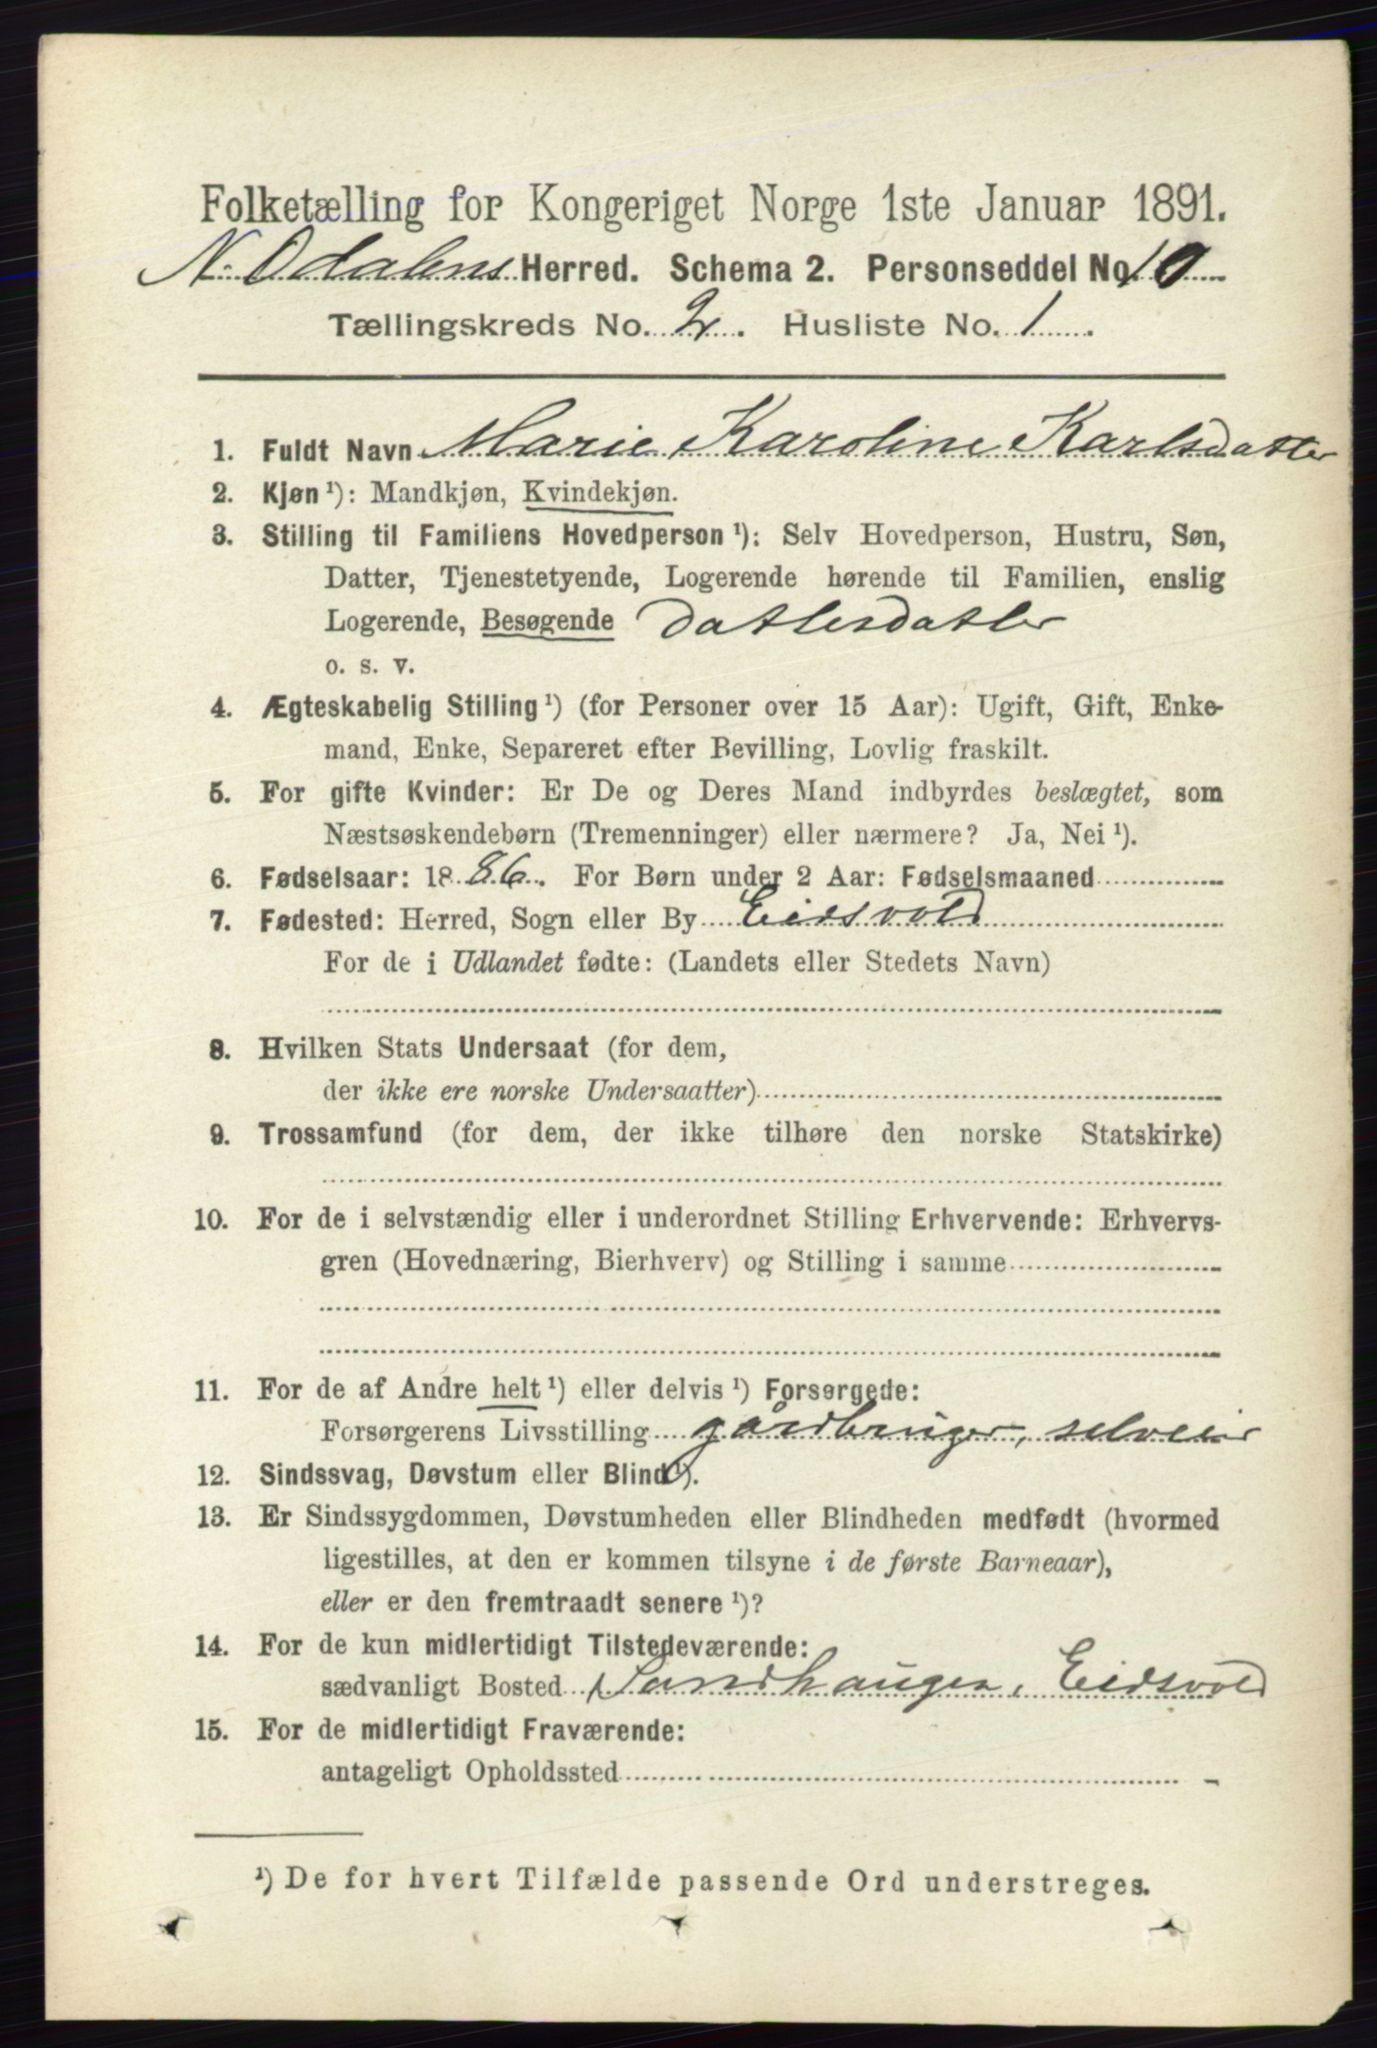 Folketælling for Kongeriget Norge 1ste Januar 1891.
N. Odalens Herred. Schema 2. Personseddel No. 10
Tællingskreds No. 2. Husliste No. 1.
1. Fuldt Navn Marie Karoline Karlsdatter
2. Kjøn ¹): Mandkjøn, Kvindekjøn.
3. Stilling til Familiens Hovedperson ¹): Selv Hovedperson, Hustru, Søn,
Datter, Tjenestetyende, Logerende hørende til Familien, enslig
Logerende, Besøgende Datterdatter
o. s. v.
4. Ægteskabelig Stilling ¹) (for Personer over 15 Aar): Ugift, Gift, Enke-
mand, Enke, Separeret efter Bevilling, Lovlig fraskilt.
5. For gifte Kvinder: Er De og Deres Mand indbyrdes beslægtet, som
Næstsøskendebørn (Tremenninger) eller nærmere? Ja, Nei ¹).
6. Fødselsaar: 1886. For Børn under 2 Aar: Fødselsmaaned
7. Fødested: Herred, Sogn eller By Eidsvold
For de i Udlandet fødte: (Landets eller Stedets Navn)
8. Hvilken Stats Undersaat (for dem,
der ikke ere norske Undersaatter)
9. Trossamfund (for dem, der ikke tilhøre den norske Statskirke)
10. For de i selvstændig eller i underordnet Stilling Erhvervende: Erhvervs-
gren (Hovednæring, Bierhverv) og Stilling i samme
11. For de af Andre helt ¹) eller delvis ¹) Forsørgede:
Forsørgerens Livsstilling gårdbruger, selveier
12. Sindssvag, Døvstum eller Blind ¹).
13. Er Sindssygdommen, Døvstumheden eller Blindheden medfødt (hvormed
ligestilles, at den er kommen tilsyne i de første Barneaar),
eller er den fremtraadt senere ¹)?
14. For de kun midlertidigt Tilstedeværende:
sædvanligt Bosted Sandhaugen, Eidsvold
15. For de midlertidigt Fraværende:
antageligt Opholdssted
¹) De for hvert Tilfælde passende Ord understreges.